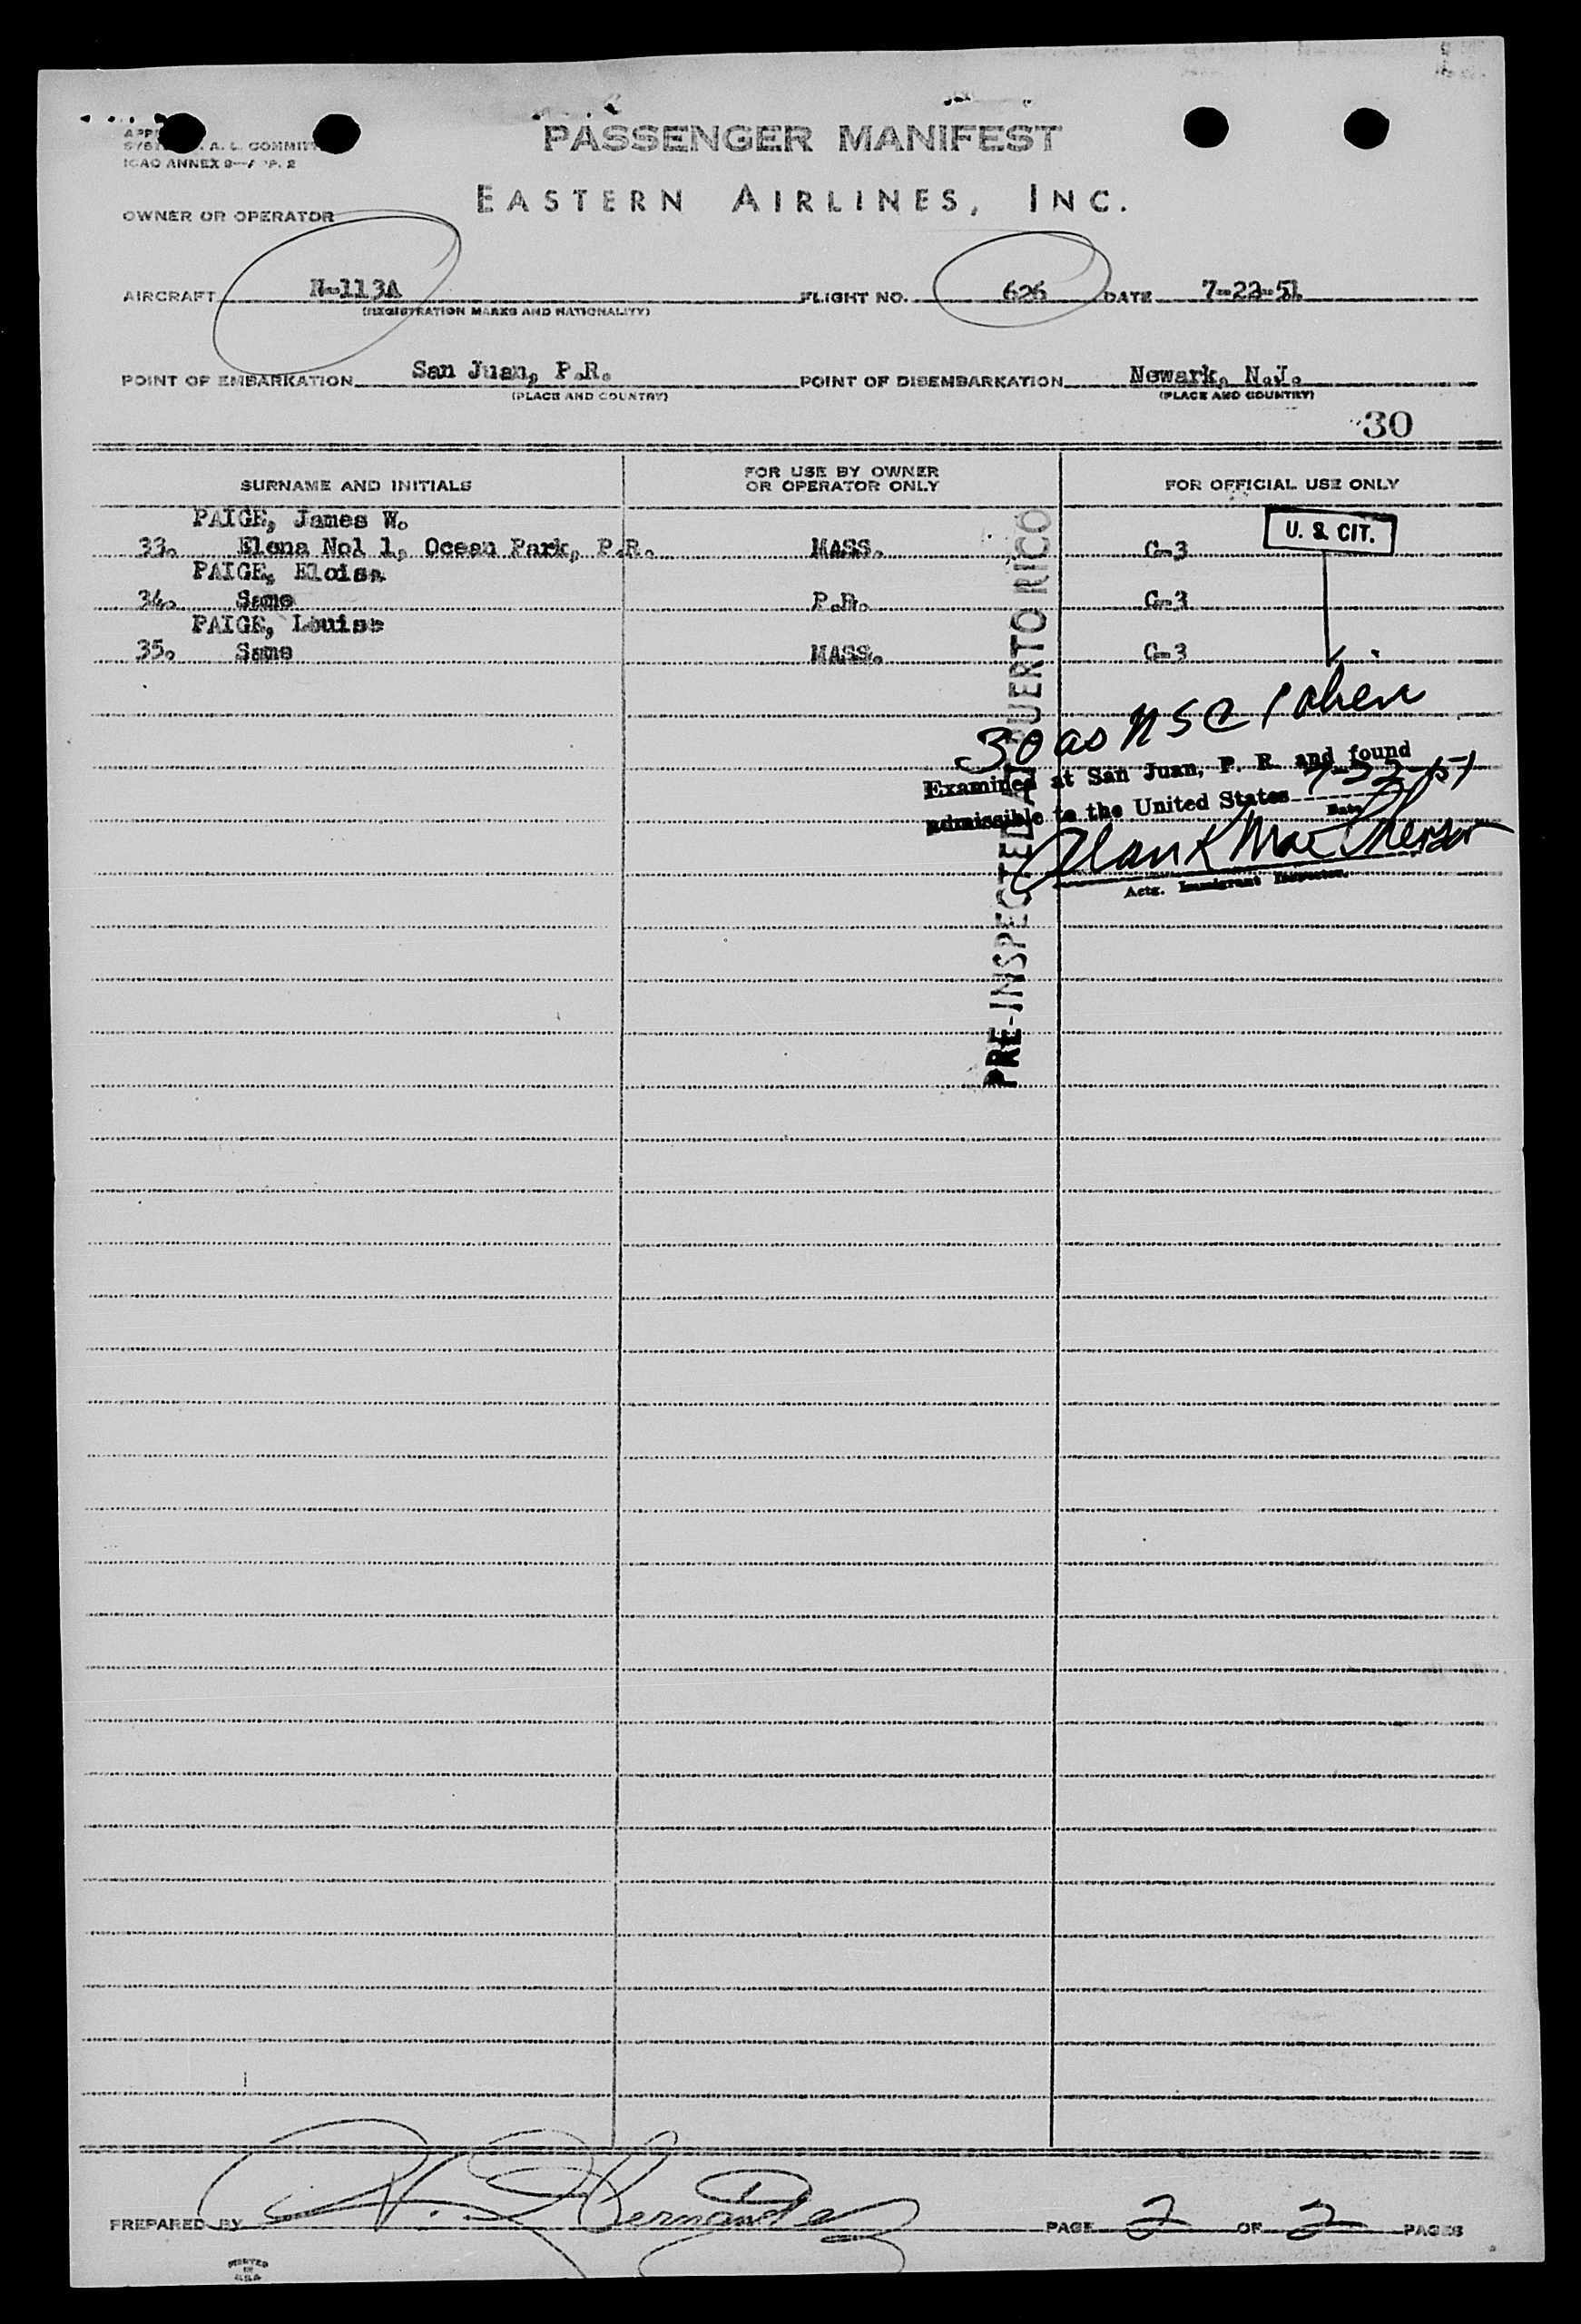 PASSENGER MANIFEST
A. L. COMMITT
ICAO ANNEX 9—APP. 2
EASTERN AIRLINES, INC.
OWNER OR OPERATOR
AIRCRAFT N-113A FLIGHT NO. 626 DATE 7-22-51
(REGISTRATION MARKS AND NATIONALITY)
POINT OF EMBARKATION San Juan, P.R. POINT OF DISEMBARKATION Newark, N.J.
(PLACE AND COUNTRY) (PLACE AND COUNTRY)
30
SURNAME AND INITIALS FOR USE BY OWNER OR OPERATOR ONLY FOR OFFICIAL USE ONLY
PAIGE, James W.
33. Elena Nol 1, Ocean Park, P.R. MASS. C-3 U. S. CIT.
PAIGE, Eloisa
34. Same P.R. C-3
PAIGE, Louise
35. Same MASS. C-3
30 as NSC
Examined at San Juan, P. R. and found
admissible to the United States 7-22-51
Date
Actg. Immigrant Inspector.
PRE-INSPECTED AT PUERTO RICO
PREPARED BY Hernandez PAGE 2 OF 2 PAGES
PRINTED
IN
U.S.A.